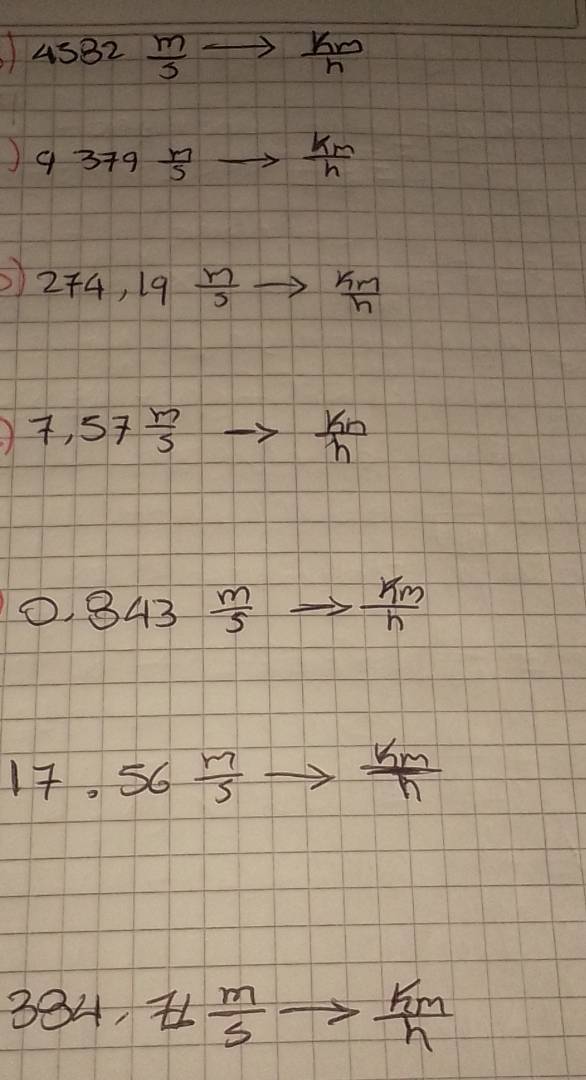 ) 4582 m/s → Km/h
) 9 379 m/s → Km/h
) 274,19 m/s → Km/h
) 7,57 m/s → Km/h
) 0.843 m/s → Km/h
17.56 m/s → Km/h
384, 71 m/s → Km/h